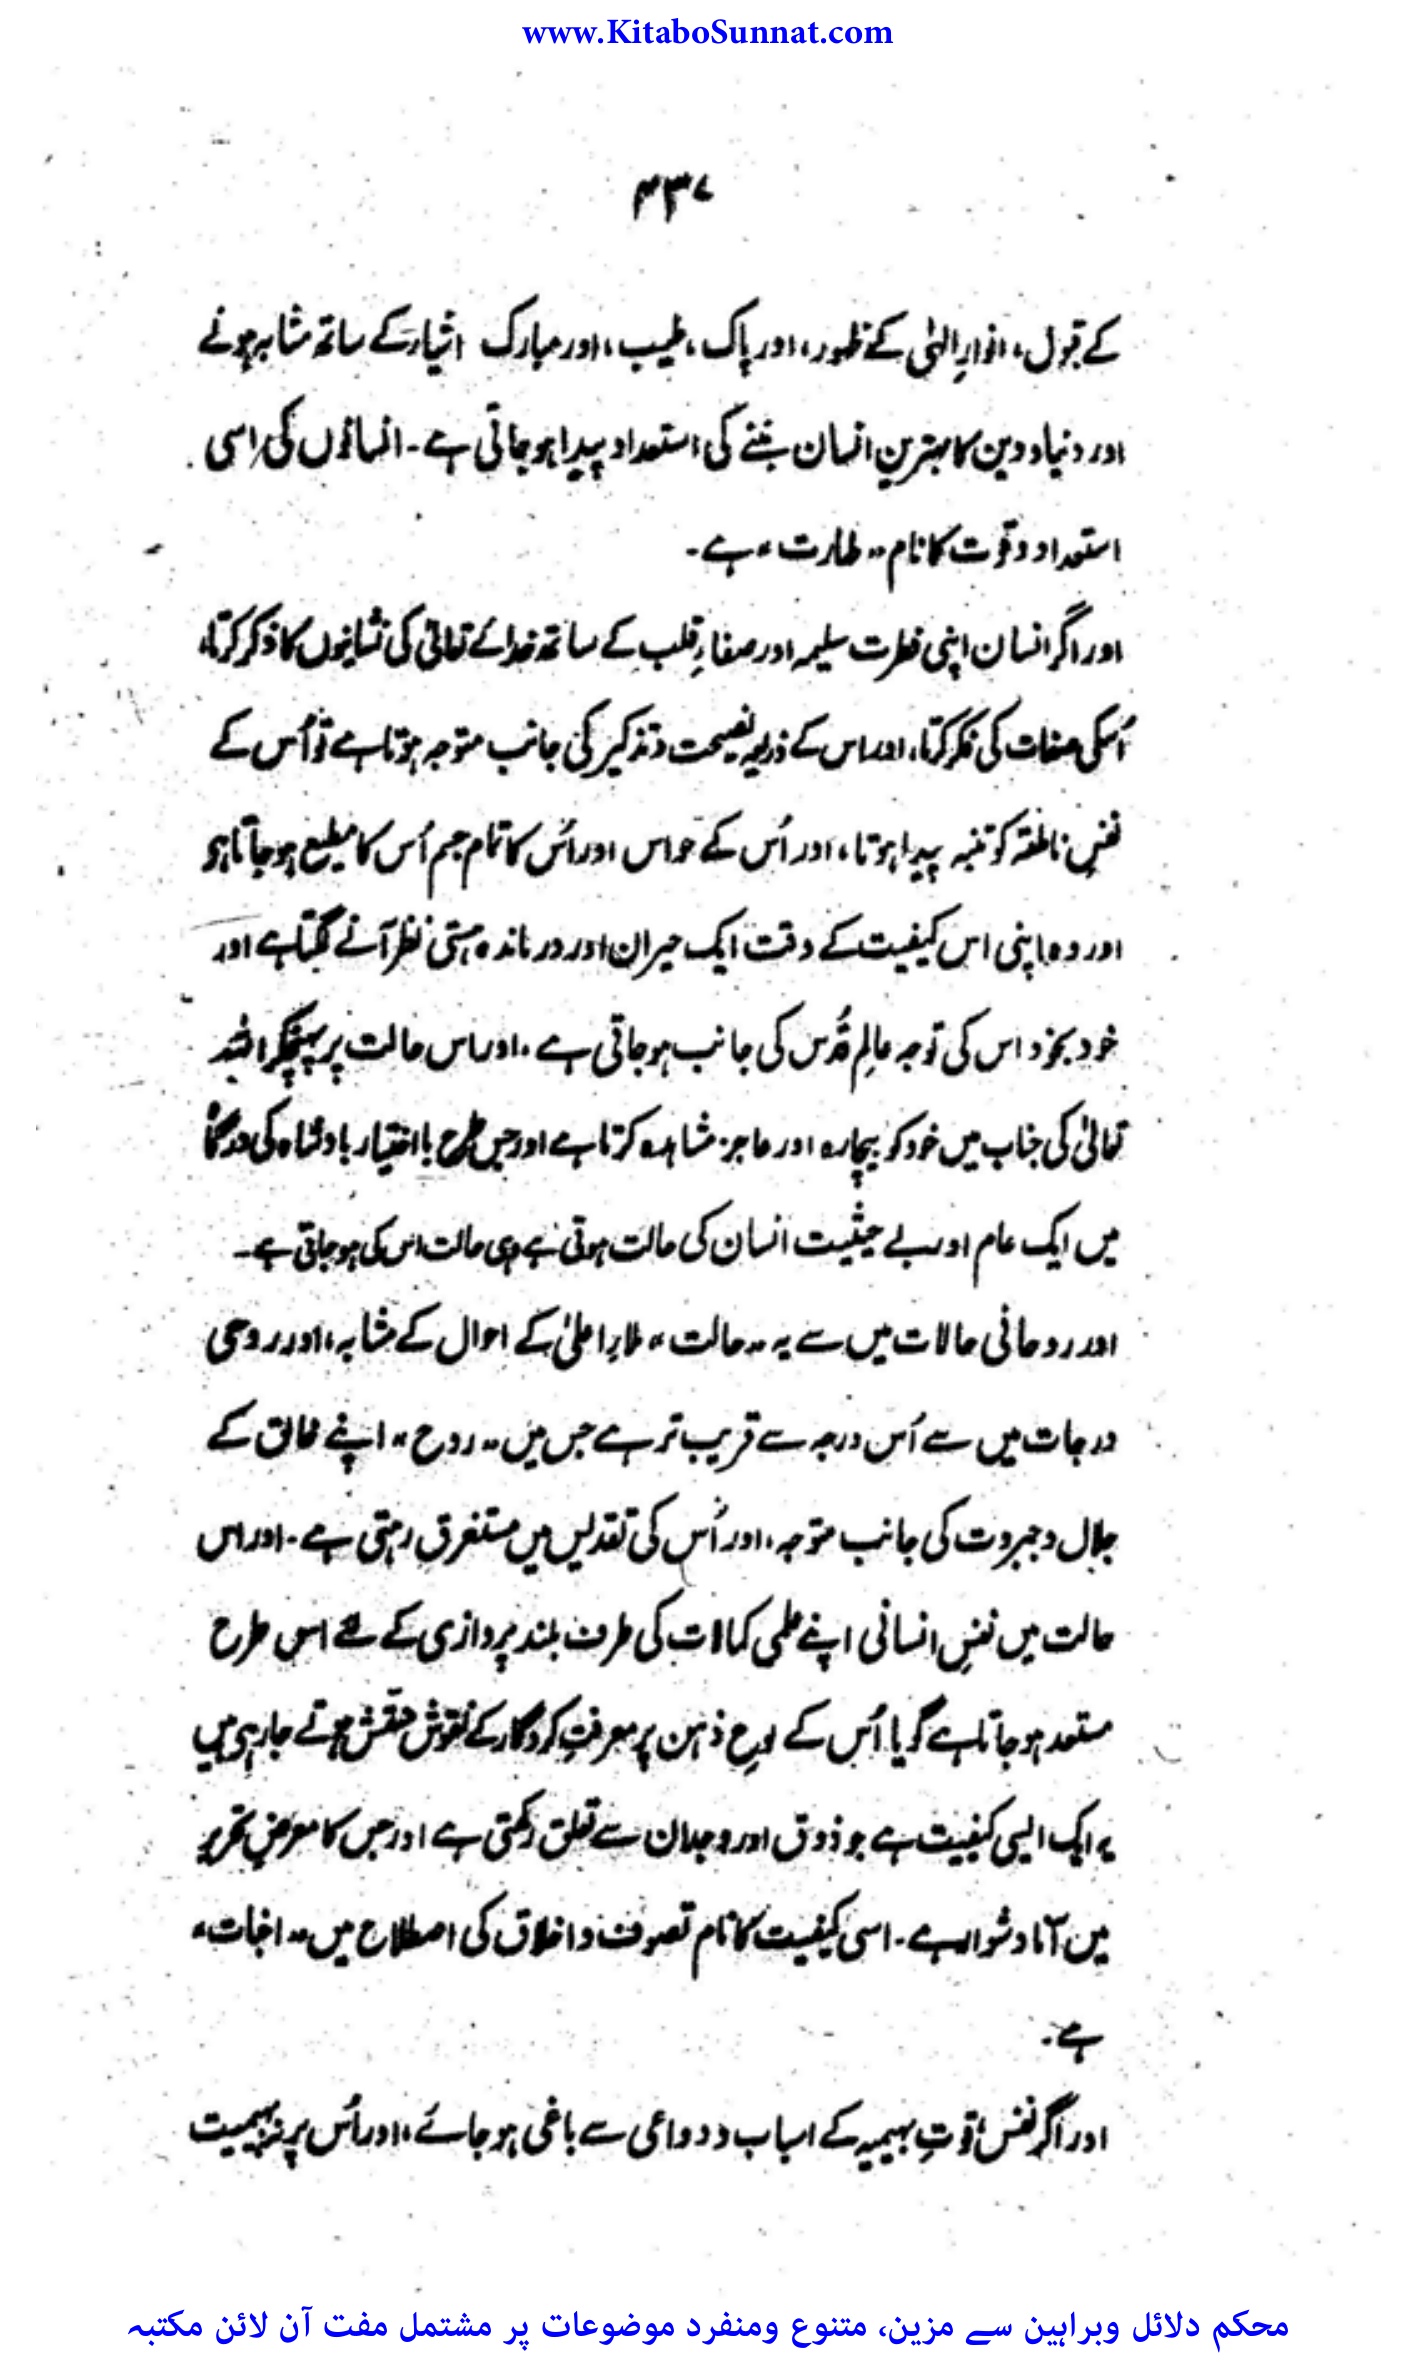 www.KitaboSunnat.com
۴۳۷
کے قبول، انوارِ الہٰی کے ظہور، اور پاک، طیب، اور مبارک اشیاء کے ساتھ مشابہ ہونے
اور دنیا و دین کا بہترین انسان بننے کی استعداد پیدا ہو جاتی ہے۔ انسانوں کی اسی
استعداد و قوت کا نام "طہارت" ہے۔
اور اگر انسان اپنی فطرت سلیمہ اور صفاءِ قلب کے ساتھ خدائے تعالیٰ کی نشانیوں کا ذکر کرتا،
اُسکی صفات کی فکر کرتا، اور اس کے ذریعہ نصیحت و تذکیر کی جانب متوجہ ہوتا ہے تو اُس کے
نفسِ ناطقہ کو تنبہ پیدا ہوتا، اور اُس کے حواس اور اُس کا تمام جسم اُس کا مطیع ہو جاتا ہو
اور وہ اپنی اس کیفیت کے وقت ایک حیران اور درماندہ ہستی نظر آنے لگتا ہے اور
خود بخود اس کی توجہ عالمِ قُدس کی جانب ہو جاتی ہے، اور اس حالت پر پہنچکر اللہ
تعالیٰ کی جناب میں خود کو بیچارہ اور عاجز مشاہدہ کرتا ہے اور جس طرح با اختیار بادشاہ کی درگاہ
میں ایک عام اور بے حیثیت انسان کی حالت ہوتی ہے وہی حالت اس کی ہو جاتی ہے۔
اور روحانی حالات میں سے یہ "حالت" ملاءِ اعلیٰ کے احوال کے مشابہ، اور روحی
درجات میں سے اُس درجہ سے قریب تر ہے جس میں "روح" اپنے خالق کے
جلال و جبروت کی جانب متوجہ، اور اُس کی تقدیس میں مستغرق رہتی ہے۔ اور اس
حالت میں نفسِ انسانی اپنے علمی کمالات کی طرف بلند پروازی کے لئے اس طرح
مستعد ہو جاتا ہے گویا اُس کے لوحِ ذہن پر معرفتِ کردگار کے نقوش منقش ہوتے جا رہی ہیں
یہ ایک ایسی کیفیت ہے جو ذوق اور وجدان سے تعلق رکھتی ہے اور جس کا معرضِ تحریر
میں آنا دشوار ہے۔ اسی کیفیت کا نام تصوف و اخلاق کی اصطلاح میں "اخبات"
ہے۔
اور اگر نفس، قوتِ بہیمیہ کے اسباب و دواعی سے باغی ہو جائے، اور اُس پر نہ بہیمیت
محکم دلائل وبراہین سے مزین، متنوع ومنفرد موضوعات پر مشتمل مفت آن لائن مکتبہ